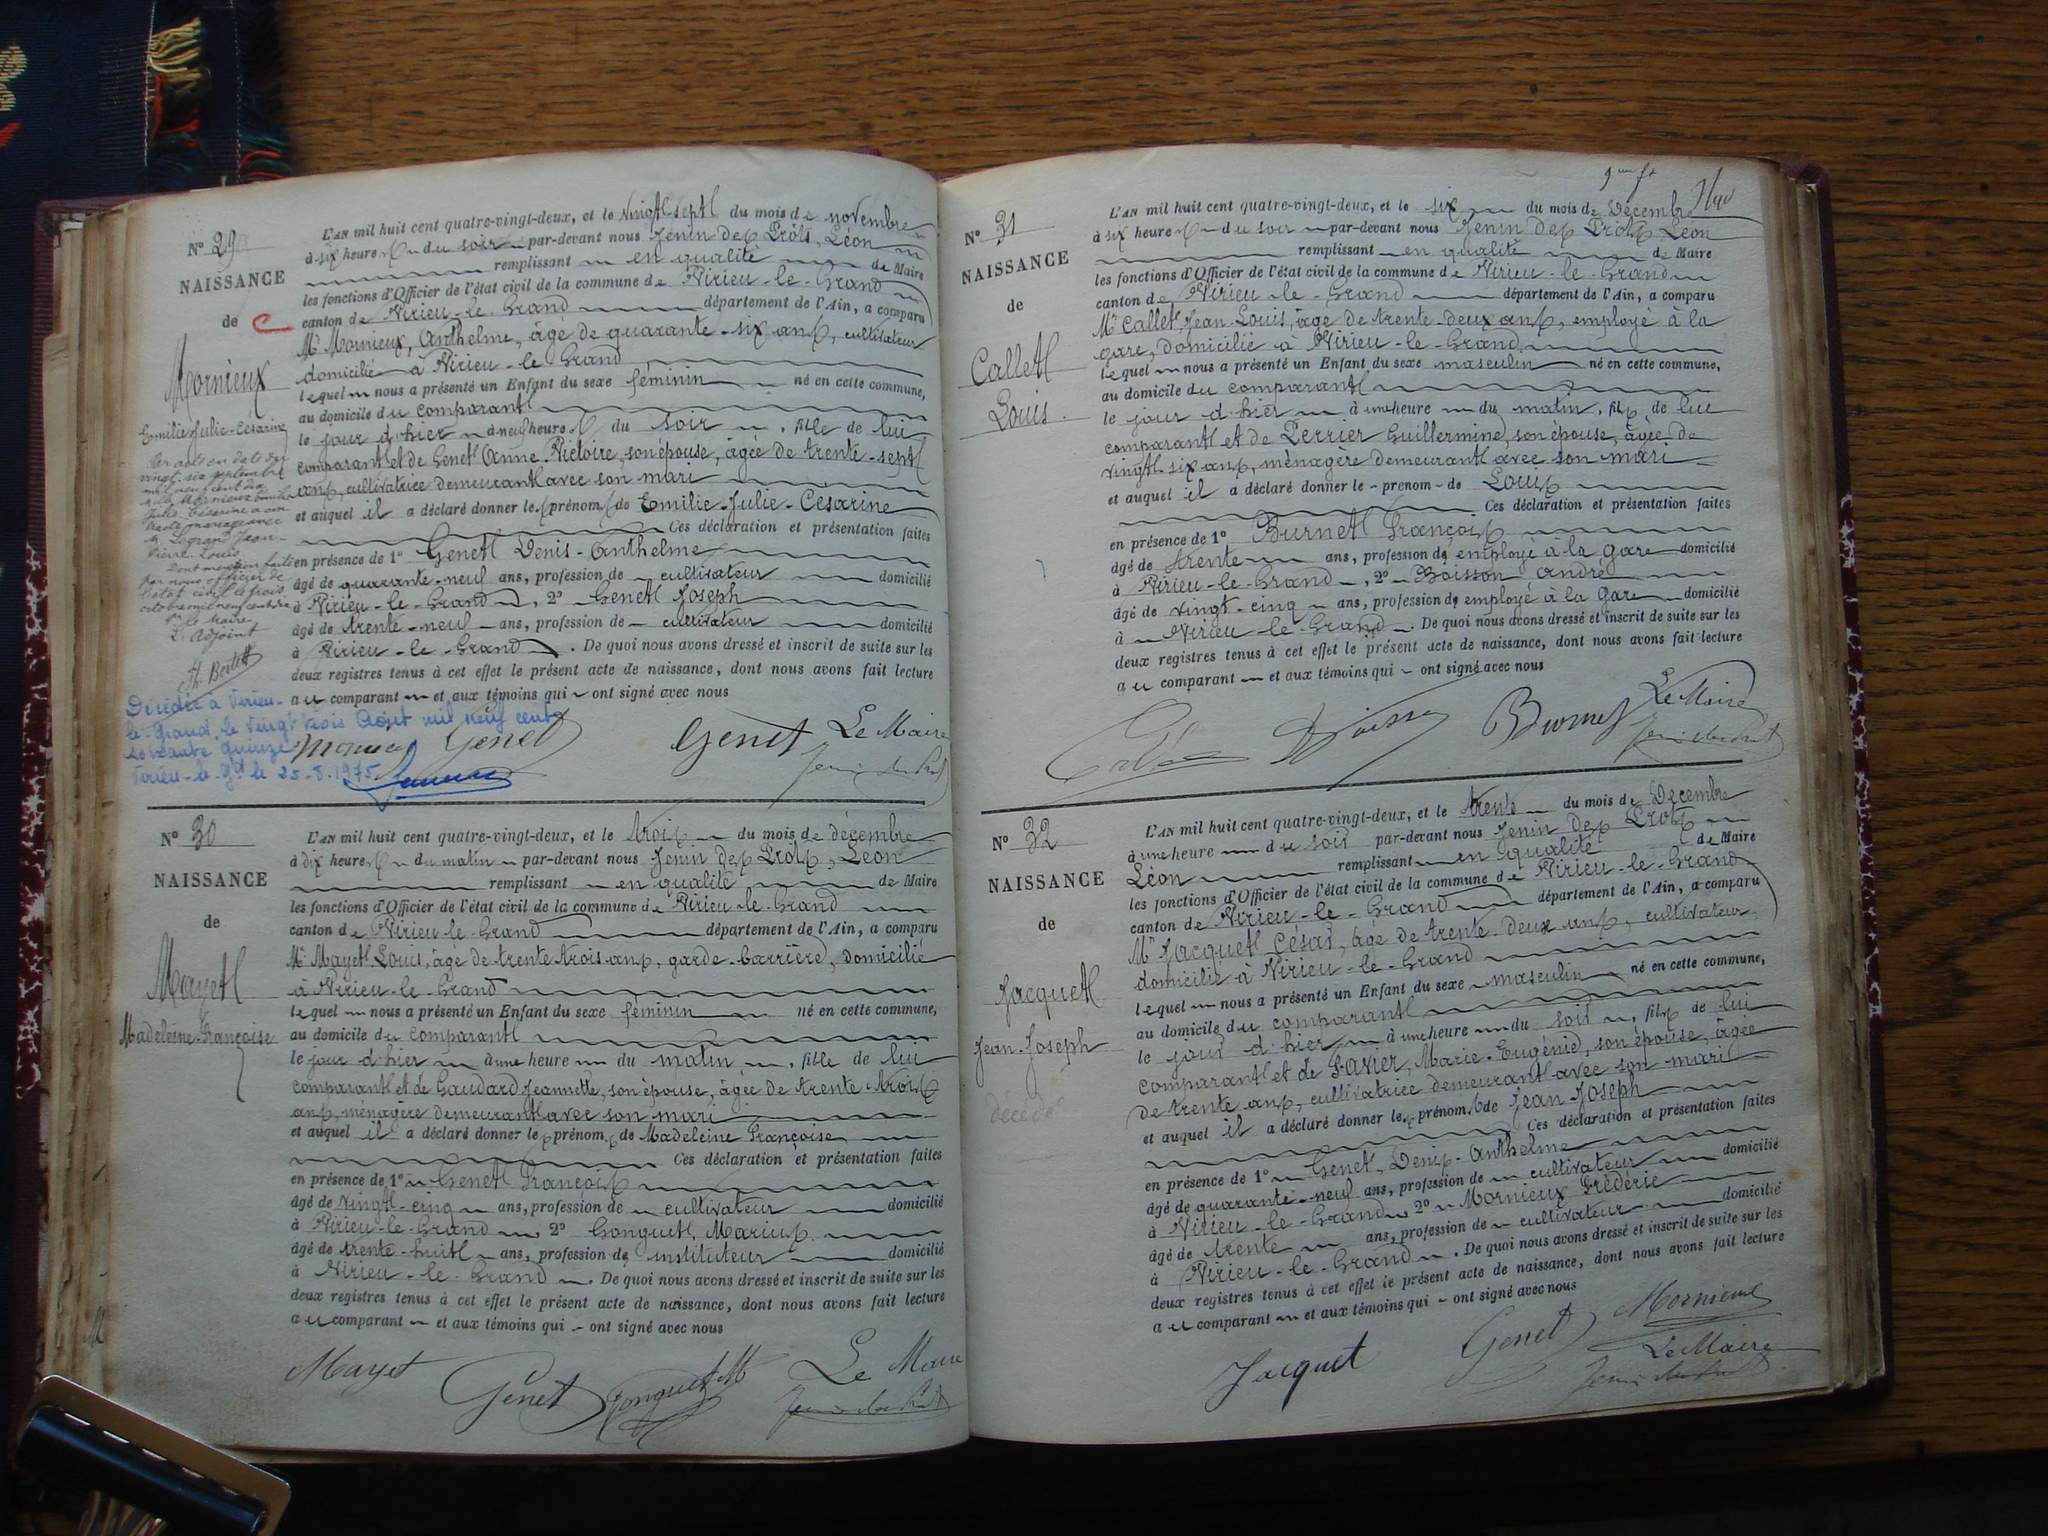 Nº 29
NAISSANCE
de
Mornieux
Emilie-Julie-Césarine
Par acte en date du
vingt-six septembre
mil neuf cent dix
Mornieux Emilie
Julie Césarine a con
tracté mariage avec
M. Legrand Jean-
Pierre-Louis
Dont mention faite
par nous officier de
l'état civil le trois
octobre mil neuf cent dix
Le Maire
L'Adjoint
Décédée à Virieu-
le-Grand, le vingt trois Août mil neuf cent
soixante quinze
Virieu-le-Gd le 25-8-1975
L'AN mil huit cent quatre-vingt-deux, et le vingt sept du mois de novembre
à six heures du soir par-devant nous Jenin des Prôts, Léon
remplissant en qualité de Maire
les fonctions d'Officier de l'état civil de la commune de Virieu-le-Grand
canton de Virieu-le-Grand département de l'Ain, a comparu
Mr Mornieux, Anthelme, âgé de quarante-six ans, cultivateur
domicilié à Virieu-le-Grand
lequel nous a présenté un Enfant du sexe féminin né en cette commune,
au domicile du comparant
le jour d'hier à neuf heures du soir, fille de lui
comparant et de Genet Anne-Victoire, son épouse, âgée de trente-sept
ans, cultivatrice demeurant avec son mari
et auquel il a déclaré donner les prénoms de Emilie-Julie-Césarine
Ces déclaration et présentation faites
en présence de 1º Genet Denis-Anthelme
âgé de quarante-neuf ans, profession de cultivateur domicilié
à Virieu-le-Grand, 2º Genet Joseph
âgé de trente-neuf ans, profession de cultivateur domicilié
à Virieu-le-Grand. De quoi nous avons dressé et inscrit de suite sur les
deux registres tenus à cet effet le présent acte de naissance, dont nous avons fait lecture
au comparant et aux témoins qui ont signé avec nous
Mornieux Genet Genet Le Maire
Jenin des Prôts
Nº 30
NAISSANCE
de
Mayet
Madeleine-Françoise
L'AN mil huit cent quatre-vingt-deux, et le trois du mois de décembre
à dix heures du matin par-devant nous Jenin des Prôts, Léon
remplissant en qualité de Maire
les fonctions d'Officier de l'état civil de la commune de Virieu-le-Grand
canton de Virieu-le-Grand département de l'Ain, a comparu
Mr Mayet Louis, âgé de trente trois ans, garde-barrière, domicilié
à Virieu-le-Grand
lequel nous a présenté un Enfant du sexe féminin né en cette commune,
au domicile du comparant
le jour d'hier à une heure du matin, fille de lui
comparant et de Gaudard Jeannette, son épouse, âgée de trente-trois
ans, ménagère demeurant avec son mari
et auquel il a déclaré donner les prénoms de Madeleine Françoise
Ces déclaration et présentation faites
en présence de 1º Genet François
âgé de vingt-cinq ans, profession de cultivateur domicilié
à Virieu-le-Grand 2º Gonguet, Marius
âgé de trente-huit ans, profession de instituteur domicilié
à Virieu-le-Grand. De quoi nous avons dressé et inscrit de suite sur les
deux registres tenus à cet effet le présent acte de naissance, dont nous avons fait lecture
au comparant et aux témoins qui ont signé avec nous
Mayet Genet Gonguet M Le Maire
Jenin des Prôts
Nº 31
NAISSANCE
de
Callet
Louis
L'AN mil huit cent quatre-vingt-deux, et le six du mois de Décembre
à six heures du soir par-devant nous Jenin des Prôts Léon
remplissant en qualité de Maire
les fonctions d'Officier de l'état civil de la commune de Virieu-le-Grand
canton de Virieu-le-Grand département de l'Ain, a comparu
Mr Callet, Jean-Louis, âgé de trente-deux ans, employé à la
gare, domicilié à Virieu-le-Grand
lequel nous a présenté un Enfant du sexe masculin né en cette commune,
au domicile du comparant
le jour d'hier à une heure du matin, fils de lui
comparant et de Perrier Guillermine, son épouse, âgée de
vingt-six ans, ménagère demeurant avec son mari
et auquel il a déclaré donner le prénom de Louis
Ces déclaration et présentation faites
en présence de 1º Burnet François
âgé de trente ans, profession de employé à la gare domicilié
à Virieu-le-Grand, 2º Boisson André
âgé de vingt-cinq ans, profession de employé à la gare domicilié
à Virieu-le-Grand. De quoi nous avons dressé et inscrit de suite sur les
deux registres tenus à cet effet le présent acte de naissance, dont nous avons fait lecture
au comparant et aux témoins qui ont signé avec nous
Callet Boisson Burnet Le Maire
Jenin des Prôts
Nº 32
NAISSANCE
de
Jacquet
Jean-Joseph
décédé
L'AN mil huit cent quatre-vingt-deux, et le trente du mois de Décembre
à une heure du soir par-devant nous Jenin des Prôts
Léon remplissant en qualité de Maire
les fonctions d'Officier de l'état civil de la commune de Virieu-le-Grand
canton de Virieu-le-Grand département de l'Ain, a comparu
Mr Jacquet César, âgé de trente-deux ans, cultivateur,
domicilié à Virieu-le-Grand
lequel nous a présenté un Enfant du sexe masculin né en cette commune,
au domicile du comparant
le jour d'hier à une heure du soir, fils de lui
comparant et de Favier, Marie-Eugénie, son épouse, âgée
de trente ans, cultivatrice demeurant avec son mari
et auquel il a déclaré donner les prénoms de Jean Joseph
Ces déclaration et présentation faites
en présence de 1º Genet, Denis-Anthelme
âgé de quarante-neuf ans, profession de cultivateur domicilié
à Virieu-le-Grand 2º Mornieux Frédéric
âgé de trente ans, profession de cultivateur domicilié
à Virieu-le-Grand. De quoi nous avons dressé et inscrit de suite sur les
deux registres tenus à cet effet le présent acte de naissance, dont nous avons fait lecture
au comparant et aux témoins qui ont signé avec nous
Jacquet Genet Mornieux
Le Maire
Jenin des Prôts